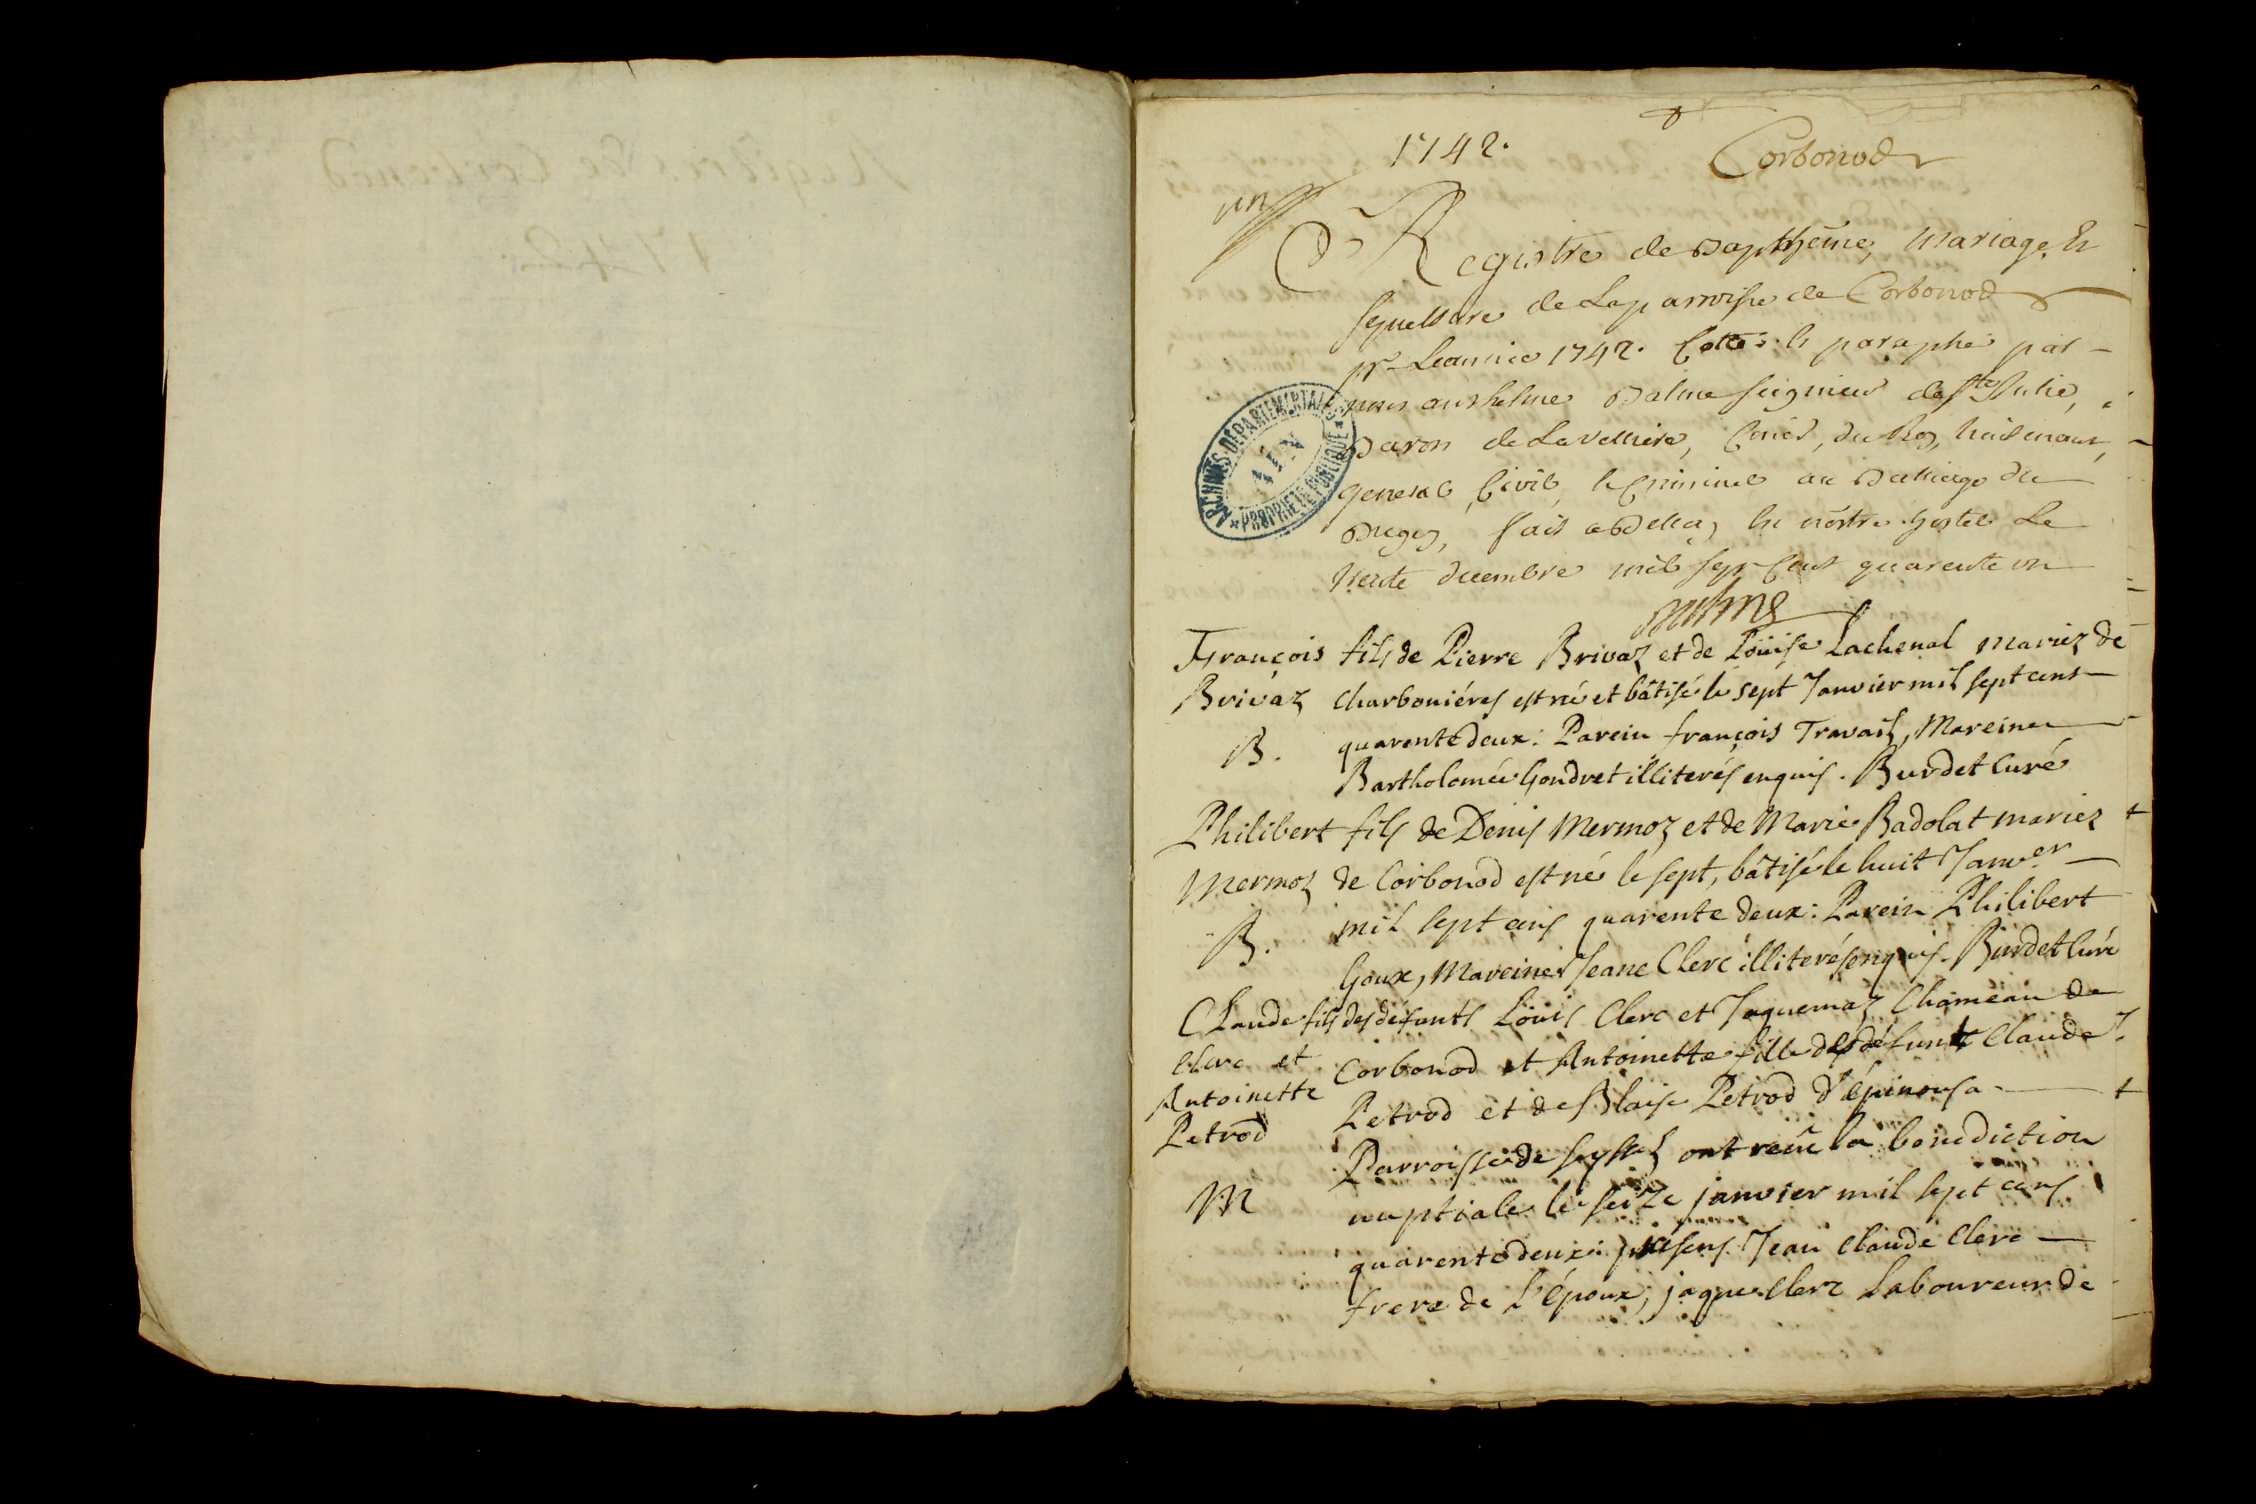 1742.
Corbonod
un
Registre de Baptheme, Mariage, Et
sepulture de La parroisse de Corbonod
pr Lannée 1742. Cotté & paraphé par
nous anthelme Balme seigneur de Ste Julie,
Baron de La velliere, Conser, du Roy, Lieutenant,
general Civil, & Criminel au Balliage du
Bugey, fait a Belley En nostre hostel Le
trente decembre mil sept Cent quarente un
ARCHIVES DÉPARTEMENTALES
AIN
PROPRIÉTÉ PUBLIQUE
François fils de Pierre Brivaz et de Loüise Lachenal mariez de
Brivaz Charboniéres est né et bâtisé le sept Janvier mil sept cens
B. quarente deux: Parein françois Travail, Mareine
Bartholomée Gondret illiterés enquis. Burdet Curé
Philibert fils de Denis Mermoz et de Marie Badolat mariez
Mermoz de Corbonod est né le sept, bâtisé le huit Janver
B. mil sept cens quarente deux: Parein Philibert
Goux, Mareine Jeane Clerc illiterés enquis. Burdet Curé
Claude fils des défunts Loüis Clerc et Jaquemaz Chameau de
Clerc et Corbonod et Antoinette fille des défunts Claude
Antoinette
Petrod Petrod et de Blaise Petrod d'épinousa
Parroisse de Seyssel ont reçû la benediction
M nuptiale le seize janvier mil sept cens
quarente deux: presens Jean Claude Clerc
frere de L'époux, jaque Clerc Laboureur de